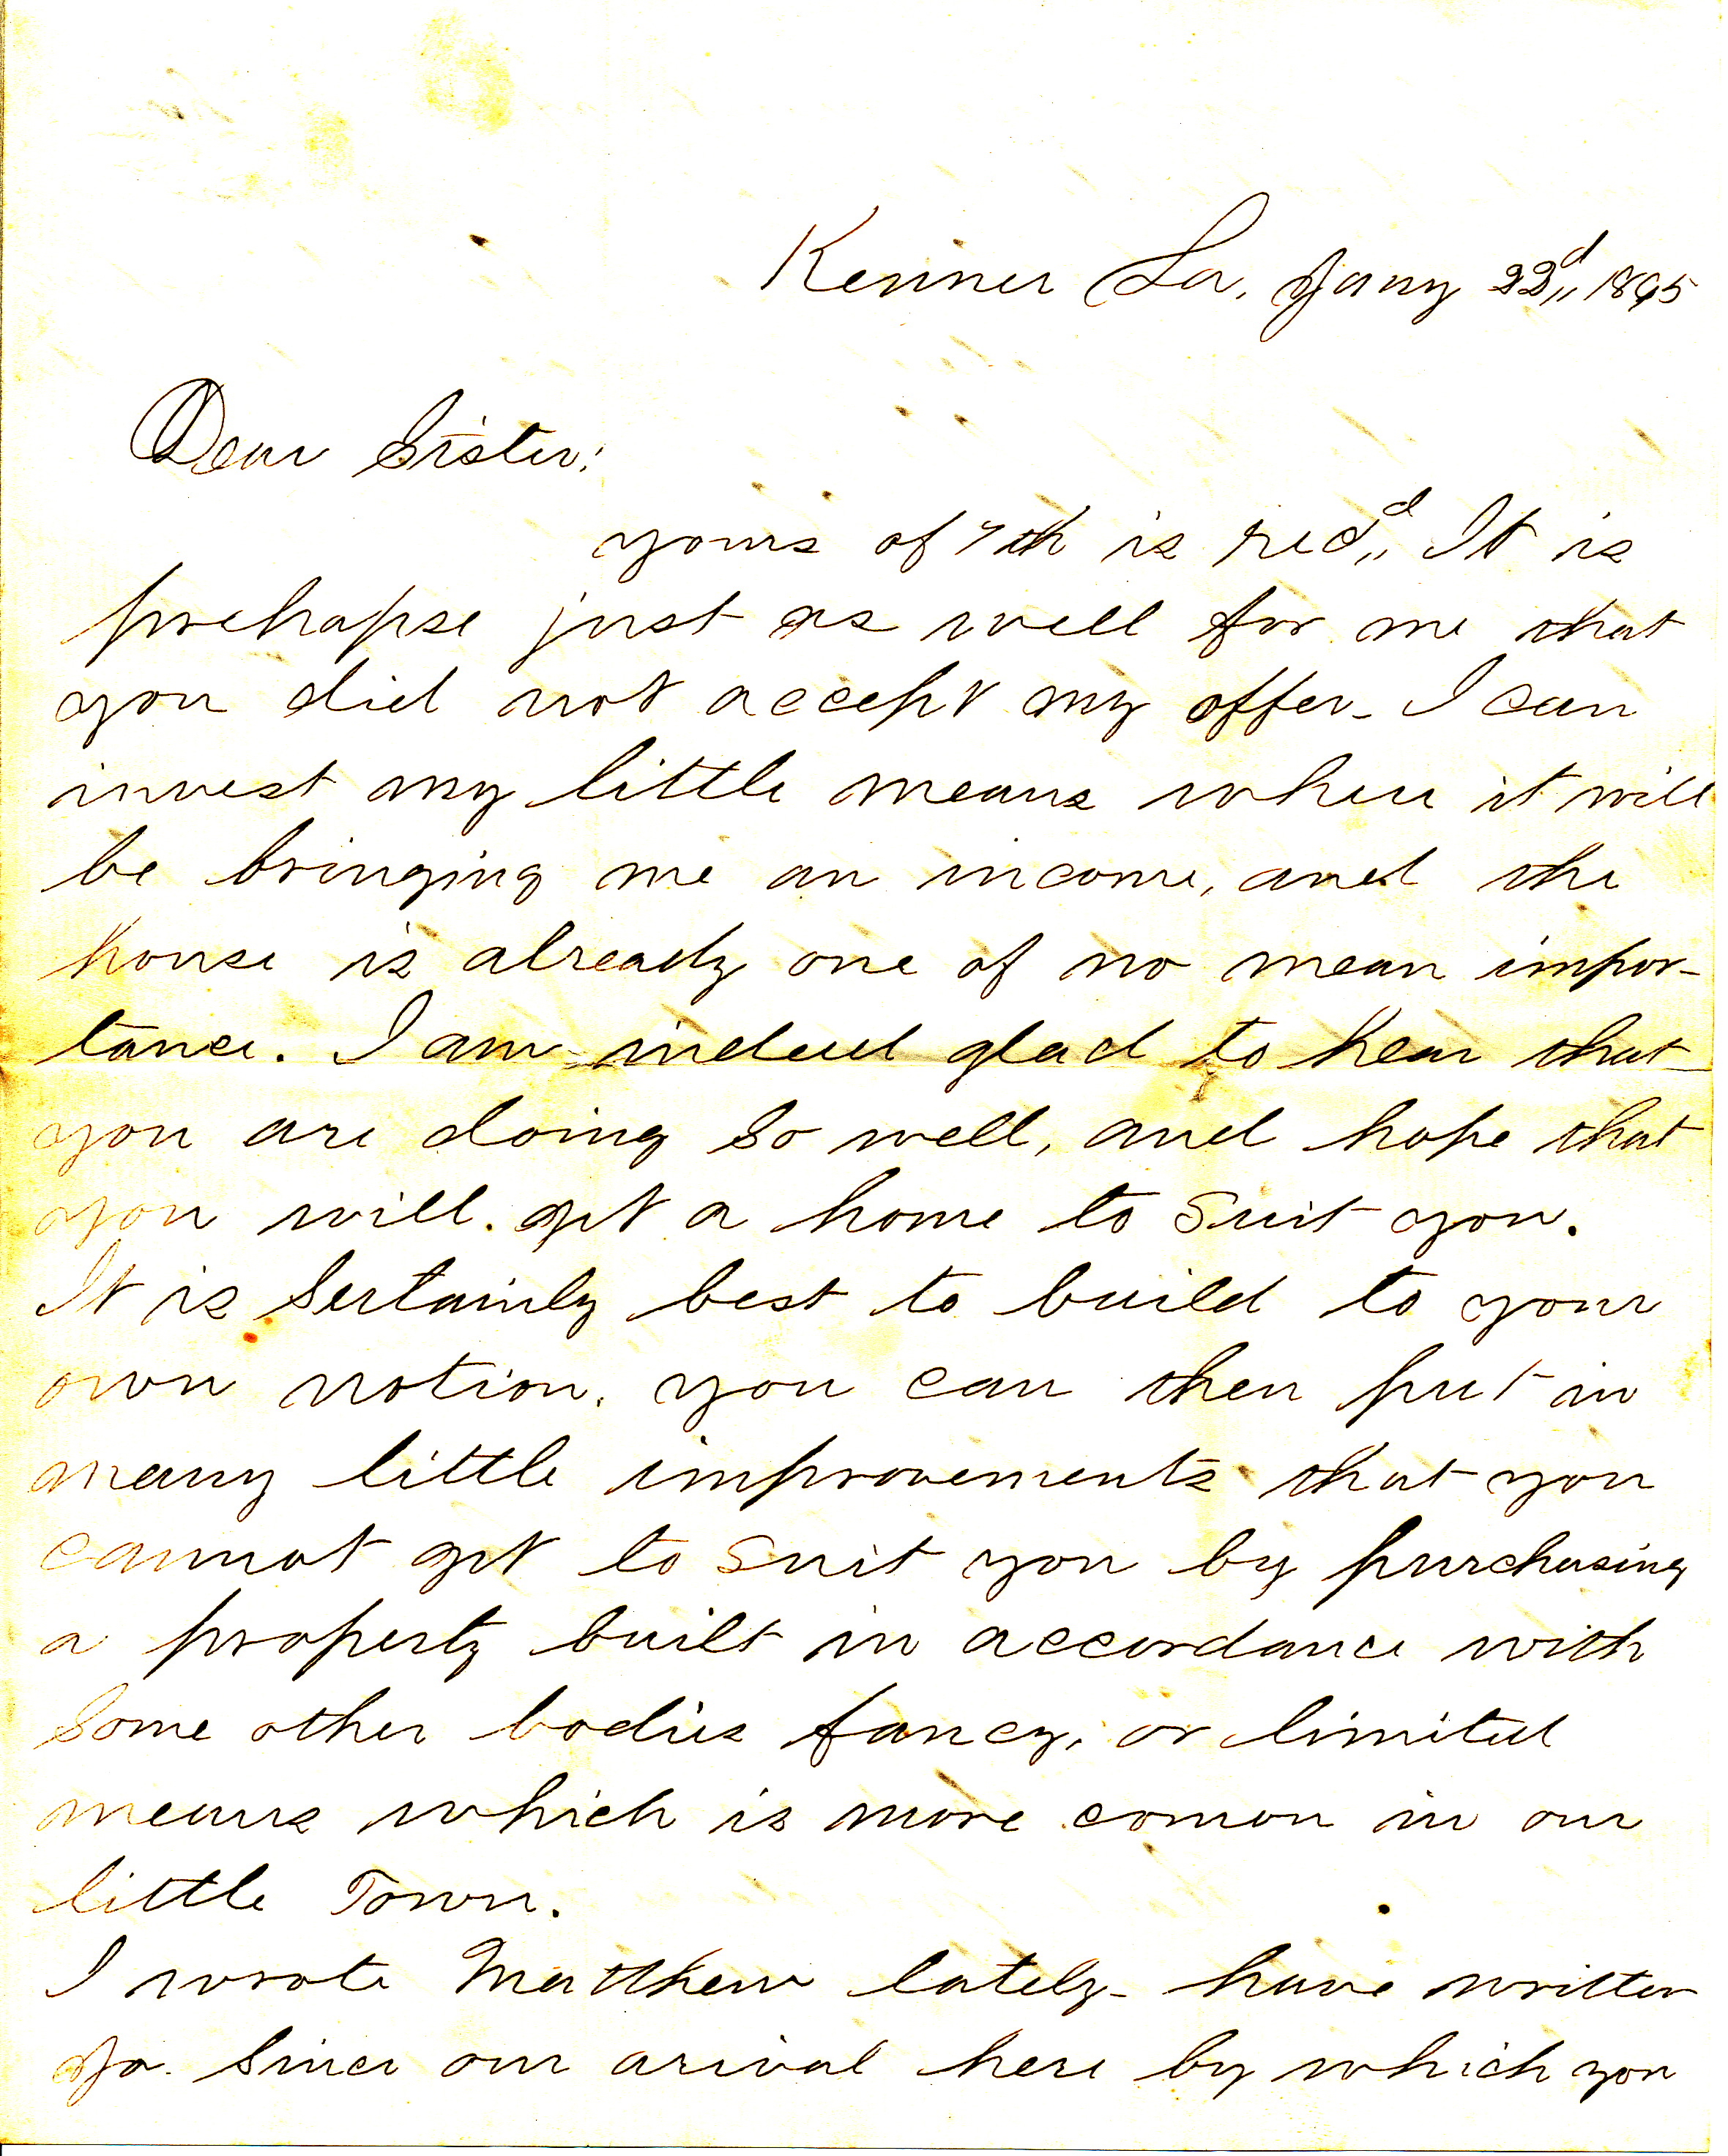 Kenner La, Jany 22d,, 1865
Dear Sister:
yours of 7th is recd,, It is
prehapse just as well for me that
you did not accept my offer - I can
invest my little means where it will
be bringing me an income, and the
house is already one of no mean impor-
tance. I am indeed glad to hear that
you are doing so well, and hope that
you will get a home to suit you.
It is sertainly best to build to your
own notion, you can then put in
many little improvements that you
cannot get to suit you by purchasing
a property built in accordance with
some other bodies fancy, or limited
means which is more comon in our
little Town.
I wrote Matthew lately - have written
Jo. since our arival here by which you